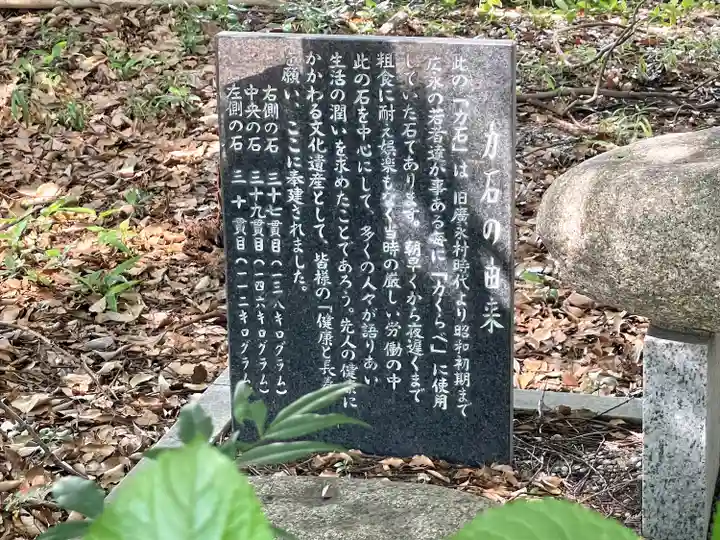 力石の由来
此の「力石」は旧廣永村時代より昭和初期まで
広永の若者達が事ある毎に「力くらべ」に使用
していた石であります。朝早くから夜遅くまで
粗食に耐え娯楽もなく当時の厳しい労働の中
此の石を中心にして、多くの人々が語りあい
生活の潤いを求めたことであろう。先人の健康に
かかわる文化遺産として、皆様の「健康と長寿
願い、ここに奉建されました。
右側の石 三十七貫目(一三八キログラム)
中央の石 三十九貫目(一四六キログラム)
左側の石 三十貫目(一一二キログラム